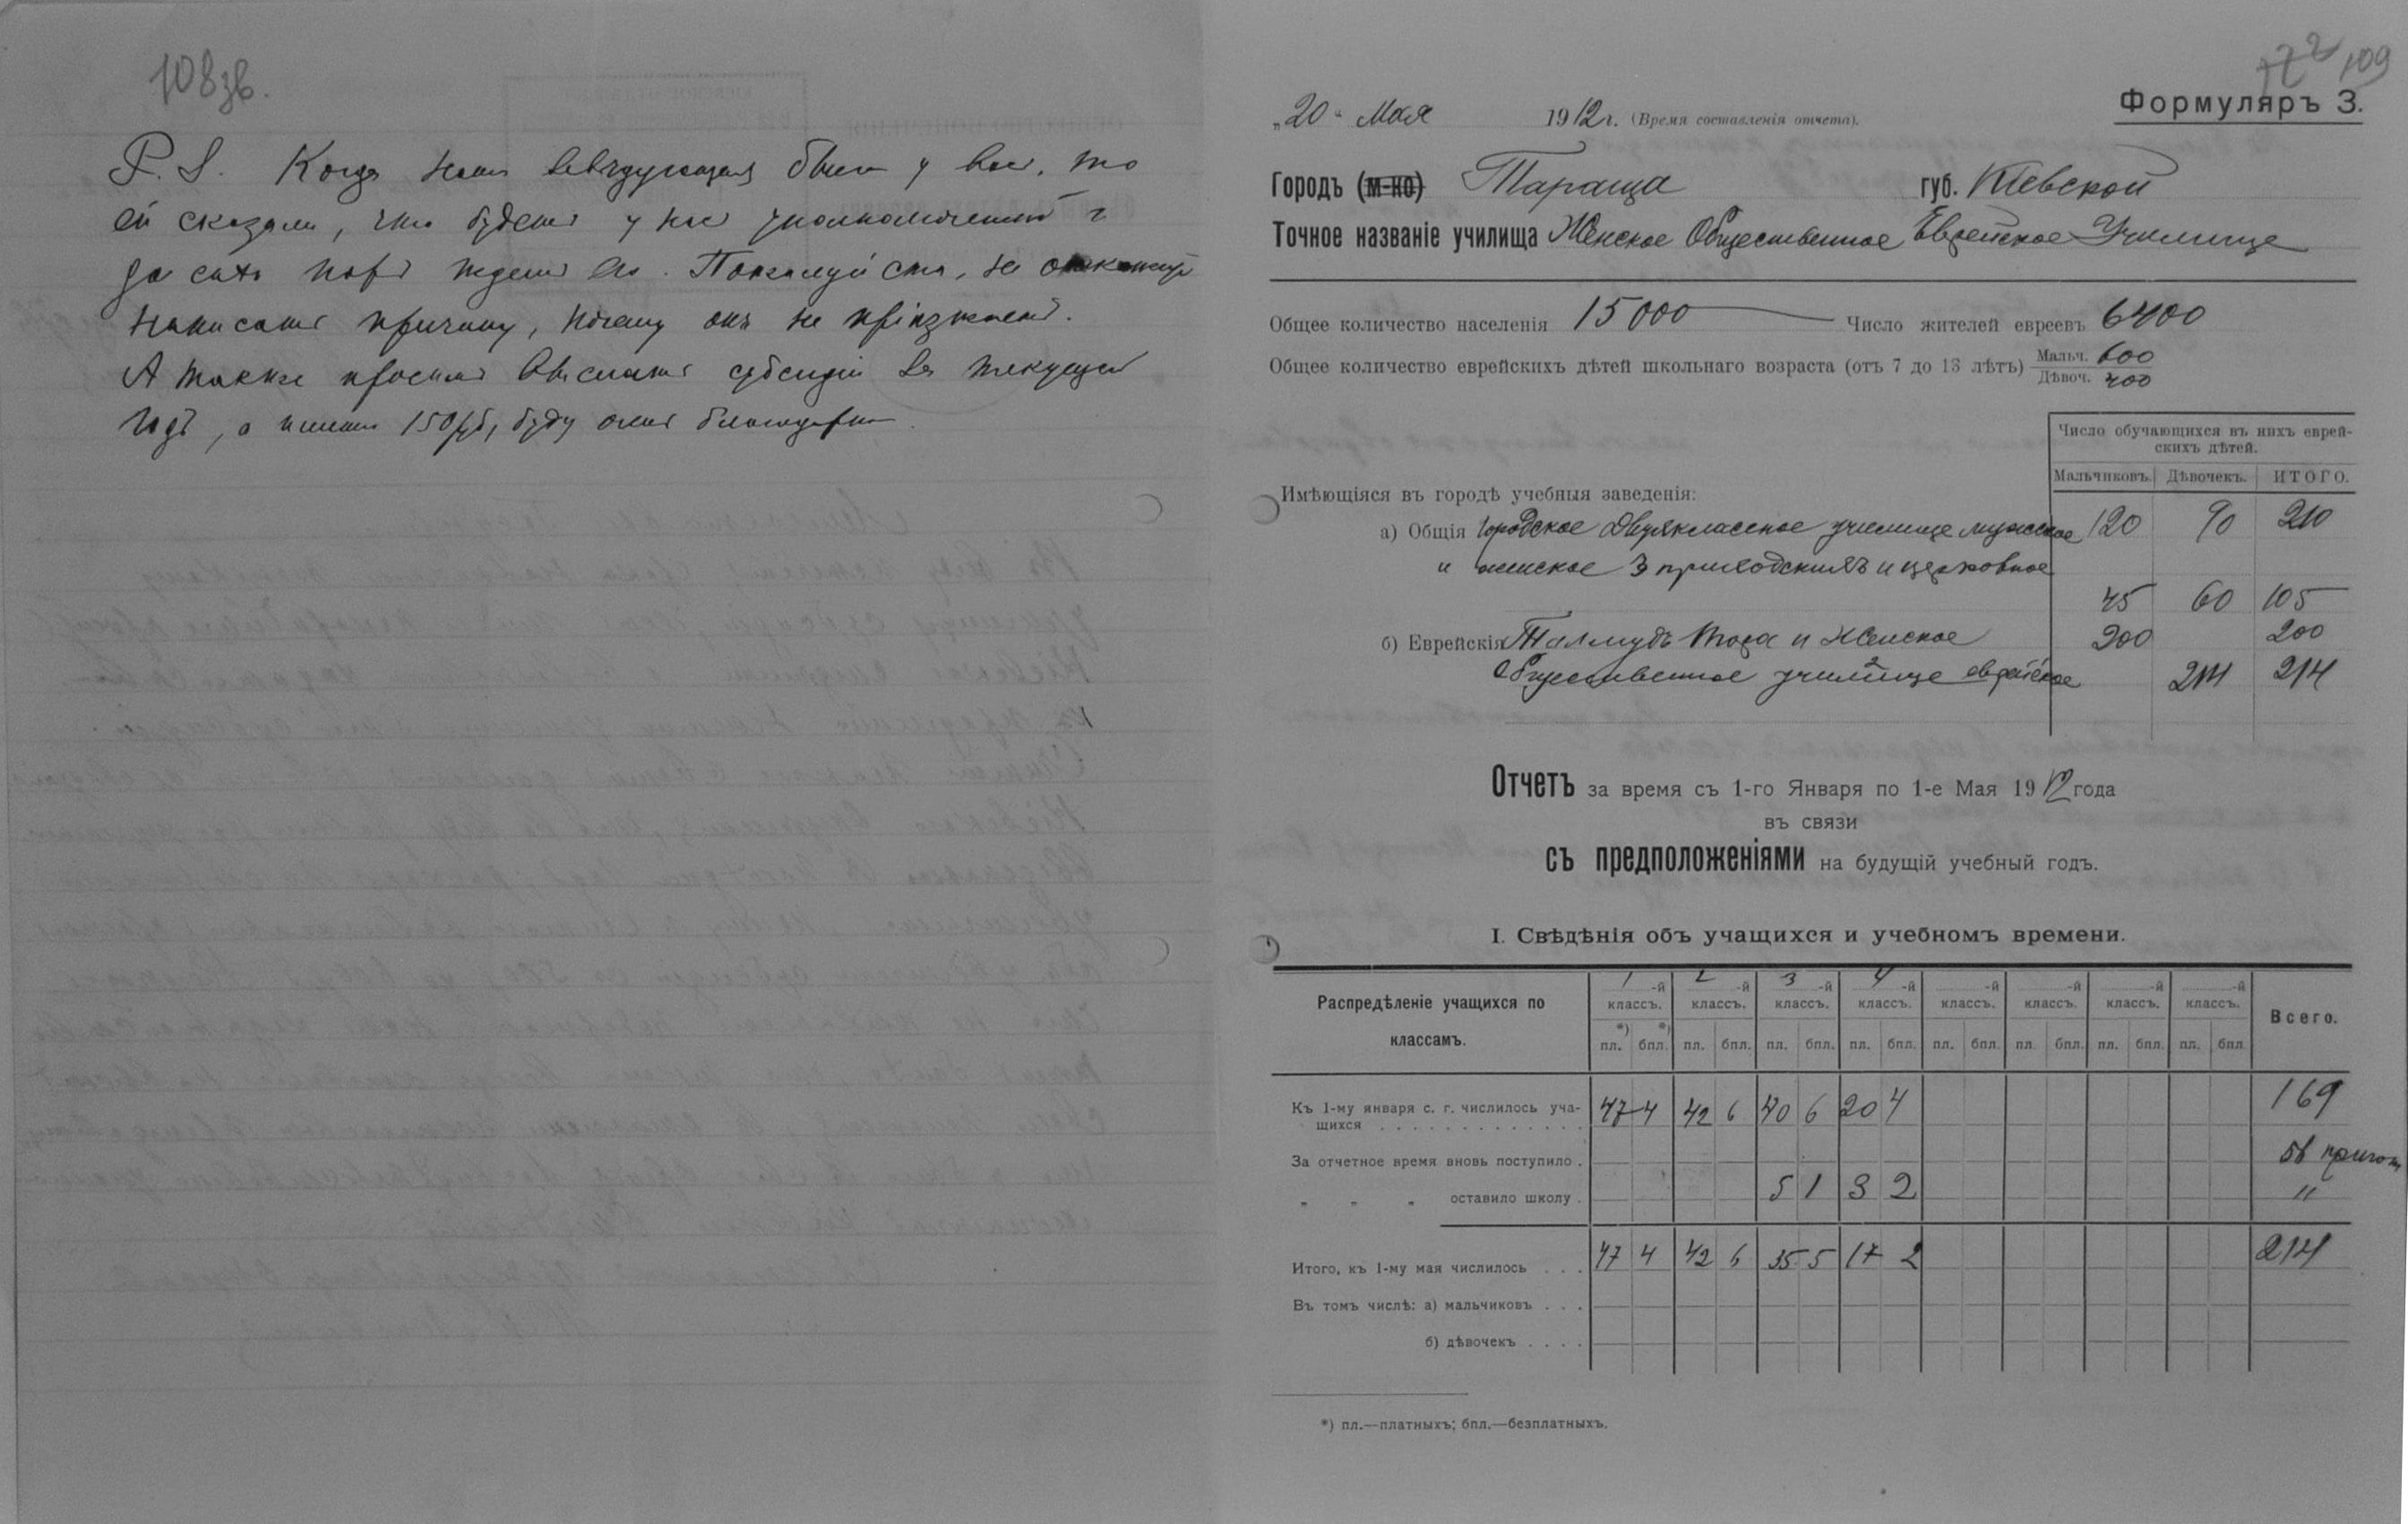 108 зв.
P. S. Когда наша завѣдующая была у вас, то
ей сказали, что будетъ у насъ уполномоченный и
до сихъ поръ ждемъ его. Пожалуйста, не откажите
написать причину, почему онъ не пріѣзжаетъ.
А также просимъ выслать субсидіи за текущій
годъ, а именно 150 руб, буду очень благодарна.
172 109
Формуляръ 3.
„20“ Мая 1912 г. (Время составленія отчета).
Городъ (м-ко) Тараща губ. Кіевской
Точное названіе училища Женское Общественное Еврейское Училище
Общее количество населенія 15000 Число жителей евреевъ 6400
Общее количество еврейскихъ дѣтей школьнаго возраста (отъ 7 до 13 лѣтъ) Мальч. 600
Дѣвоч. 400
Число обучающихся въ нихъ еврей-
скихъ дѣтей.
Мальчиковъ. Дѣвочекъ. ИТОГО.
Имѣющіяся въ городѣ учебныя заведенія:
а) Общія Городское Двухклассное училище мужское 120 90 210
и женское 3 приходскихъ и церковное
45 60 105
б) Еврейскія Талмудъ Тора и Женское 200 200
Общественное училище еврейское 214 214
Отчетъ за время съ 1-го Января по 1-е Мая 1912 года
въ связи
съ предположеніями на будущій учебный годъ.
I. Свѣдѣнія объ учащихся и учебномъ времени.
Распредѣленіе учащихся по
классамъ.
1-й 2-й 3-й 4-й -й -й -й -й
классъ. классъ. классъ. классъ. классъ. классъ. классъ. классъ.
Всего.
*) *)
пл. бпл. пл. бпл. пл. бпл. пл. бпл. пл. бпл. пл. бпл. пл. бпл. пл. бпл.
Къ 1-му января с. г. числилось уча-
щихся 47 4 42 6 40 6 20 4 169
За отчетное время вновь поступило . 56 пригот
„ „ „ оставило школу . 5 1 3 2 11
Итого, къ 1-му мая числилось . . . 47 4 42 6 35 5 17 2 214
Въ томъ числѣ: а) мальчиковъ . . .
б) дѣвочекъ . . . .
*) пл.—платныхъ; бпл.—безплатныхъ.